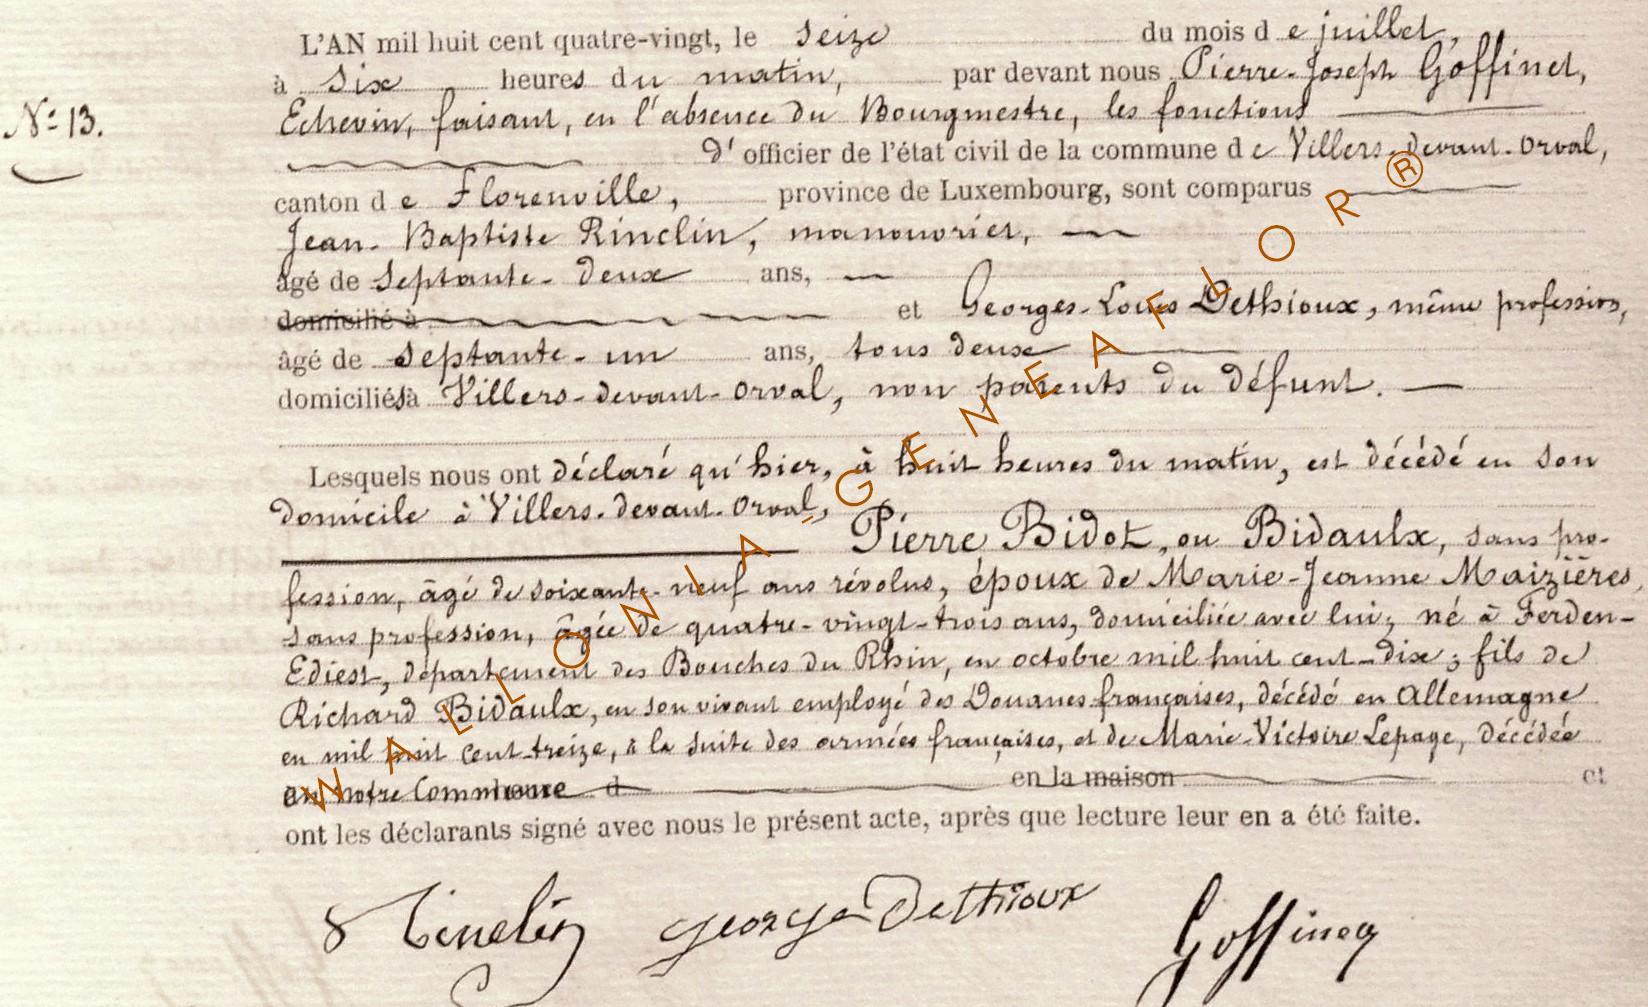 L'AN mil huit cent quatre-vingt, le seize du mois d e juillet,
à six heures du matin, par devant nous Pierre-Joseph Goffinet,
N° 13.
Echevin, faisant, en l'absence du Bourgmestre, les fonctions
d'officier de l'état civil de la commune d e Villers-devant-Orval,
canton d e Florenville, province de Luxembourg, sont comparus
Jean-Baptiste Rinclin, manouvrier,
âgé de septante-deux ans,
domicilié à et Georges-Louis Dethioux, même profession,
âgé de septante-un ans, tous deux
domiciliés à Villers-devant-Orval, non parents du défunt.
Lesquels nous ont déclaré qu'hier, à huit heures du matin, est décédé en son
domicile à Villers-devant-Orval,
Pierre Bidot, ou Bidaulx, sans pro-
fession, âgé de soixante-neuf ans révolus, époux de Marie-Jeanne Maizières,
sans profession, âgée de quatre-vingt-trois ans, domiciliée avec lui; né à Ferden-
Ediest, département des Bouches du Rhin, en octobre mil huit cent-dix; fils de
Richard Bidaulx, en son vivant employé des Douanes françaises, décédé en Allemagne
en mil huit cent treize, à la suite des armées françaises, et de Marie-Victoire Lepage, décédée
en notre Commune d en la maison et
ont les déclarants signé avec nous le présent acte, après que lecture leur en a été faite.
Rinclin George Dethioux Goffinet
WALLONIA-GENEAFLOR®